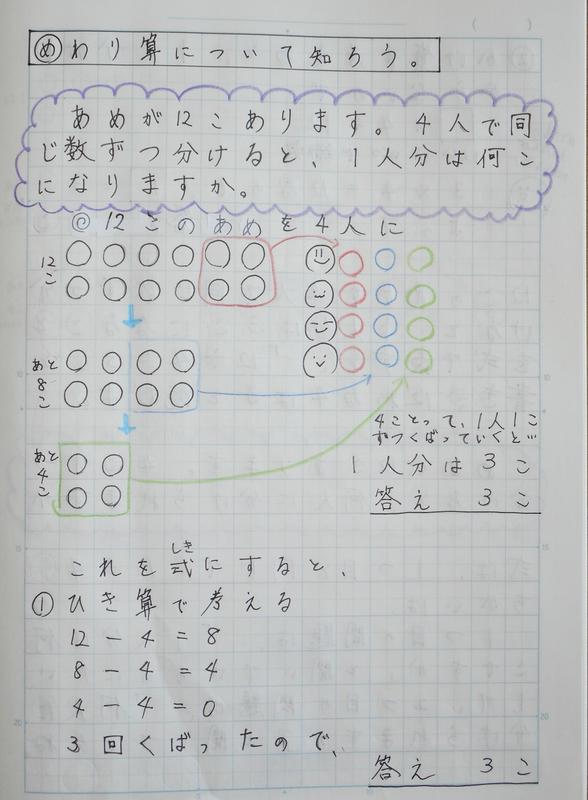 めわり算について知ろう。
あめが12こあります。4人で同
じ数ずつ分けると、1人分は何こ
になりますか。
@12このあめを4人に
12こ
あと8こ
あと4こ
4ことって、1人1こ
ずつくばっていくと…
1人分は3こ
答え 3こ
しき
これを式にすると、
①ひき算で考える
12-4=8
8-4=4
4-4=0
3回くばったので、
答え 3こ